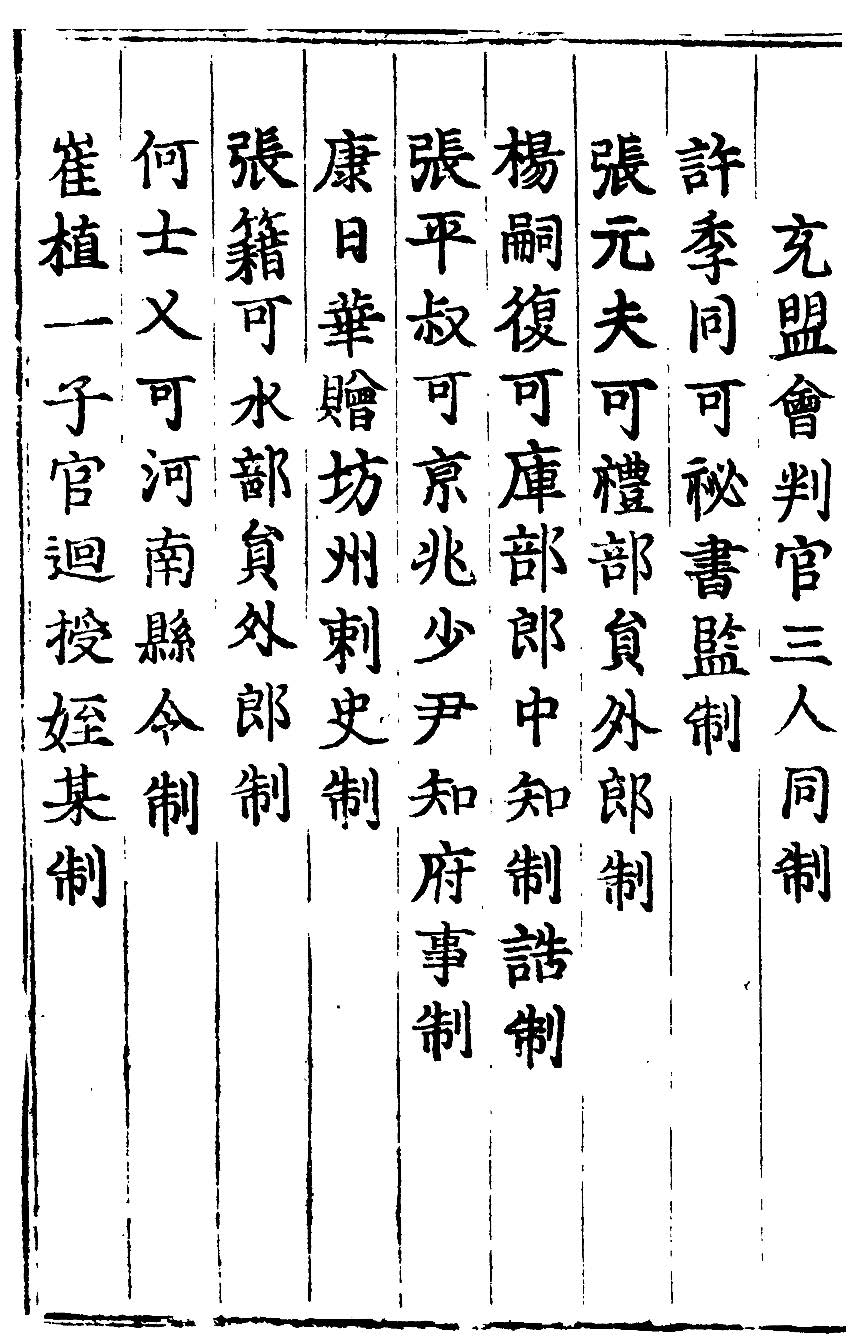 充盟會判官三人同制
許季同可祕書監制
張元夫可禮部貟外郎制
楊嗣復可庫部郎中知制誥制
張平叔可京兆少尹知府事制
康日華贈坊州刺史制
張籍可水部貟外郎制
何士乂可河南縣令制
崔植一子官迴授姪某制